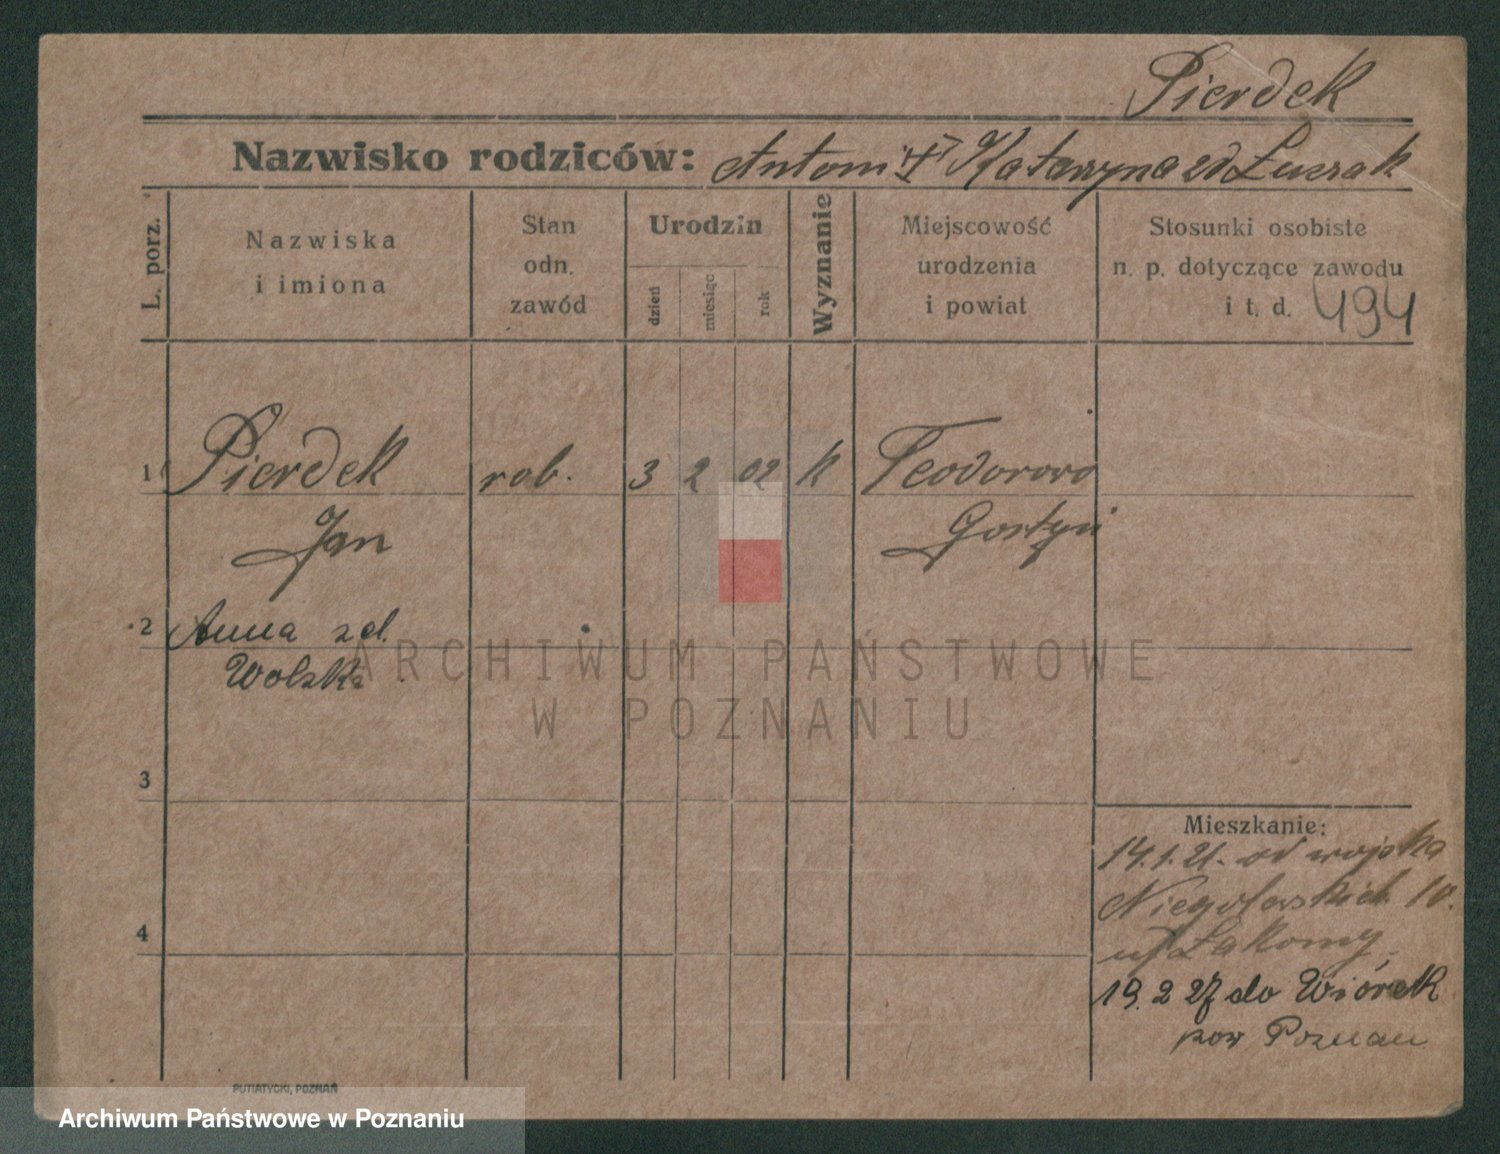 Pierdek
Nazwisko rodziców: Antoni Katarzyna zd Łuszak
L. porz.
Nazwiska i imiona
Stan odn. zawód
Urodzin
dzień
miesiąc
rok
Wyznanie
Miejscowość urodzenia i powiat
Stosunki osobiste n. p. dotyczące zawodu i t. d. 494
1 Pierdek rob. 3 2 02 k Teodorowo
Jan Gostyń
2 Anna zd.
Wolska
ARCHIWUM PAŃSTWOWE
W POZNANIU
3
4
Mieszkanie:
14.1.21. od wojska
Niegolewskich 10.
Łakomy
19.2 27 do Wiórek
pow Poznan
PUTIATYCKI, POZNAŃ
Archiwum Państwowe w Poznaniu